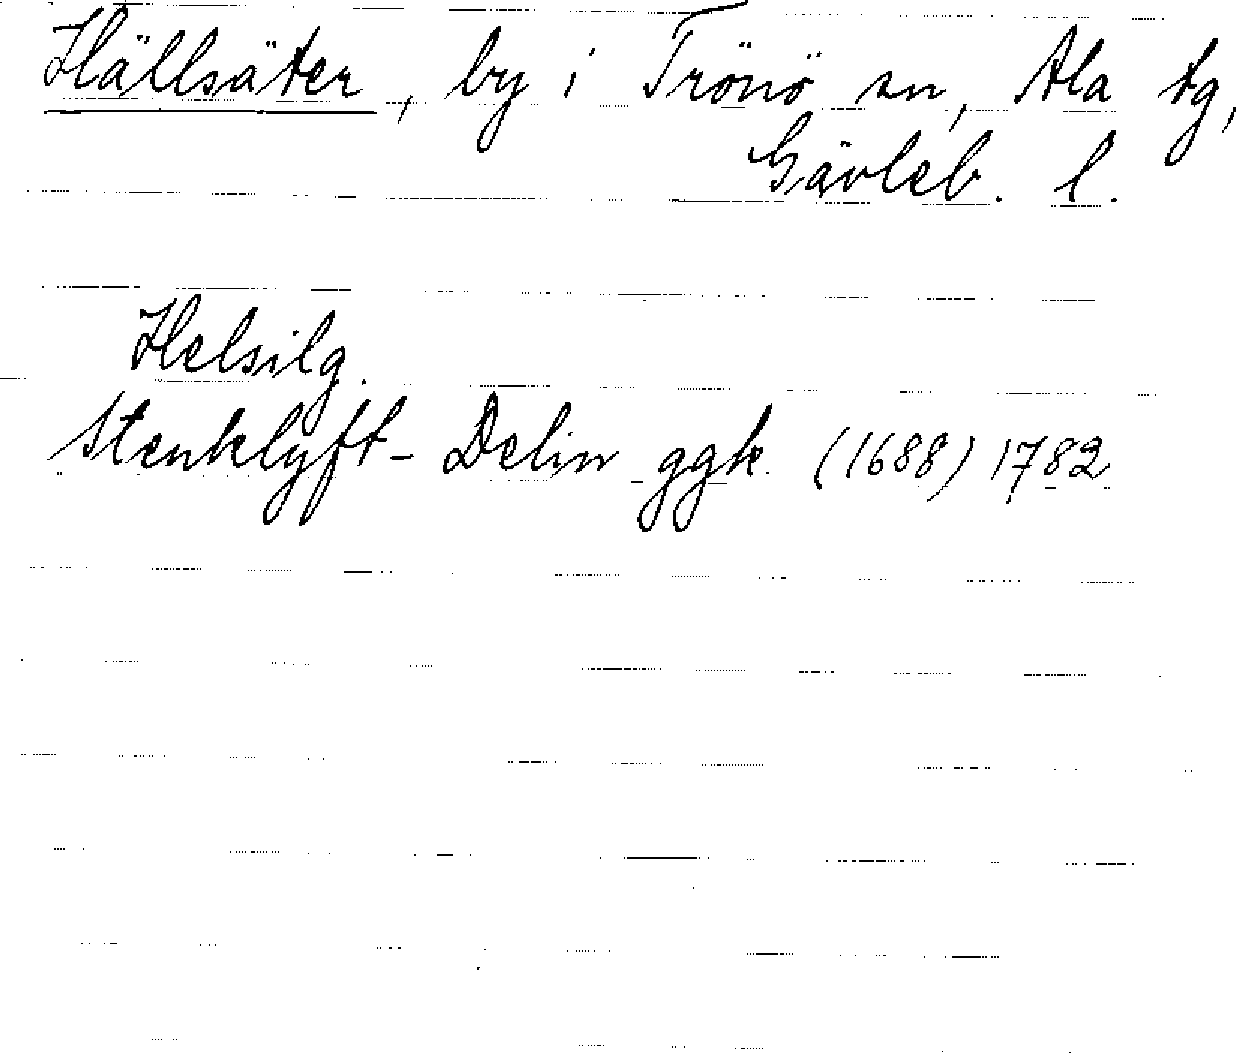 Hällsäter, by i Trönö sn, Ala tg,
Gävleb. l.
Helsilg.
Stenklyft- Delin ggk. (1688) 1782